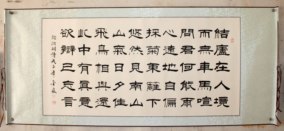 結廬在人境
而無車馬喧
問君何能爾
心遠地自偏
採菊東籬下
悠然見南山
山氣日夕佳
飛鳥相與還
此中有真意
欲辯已忘言